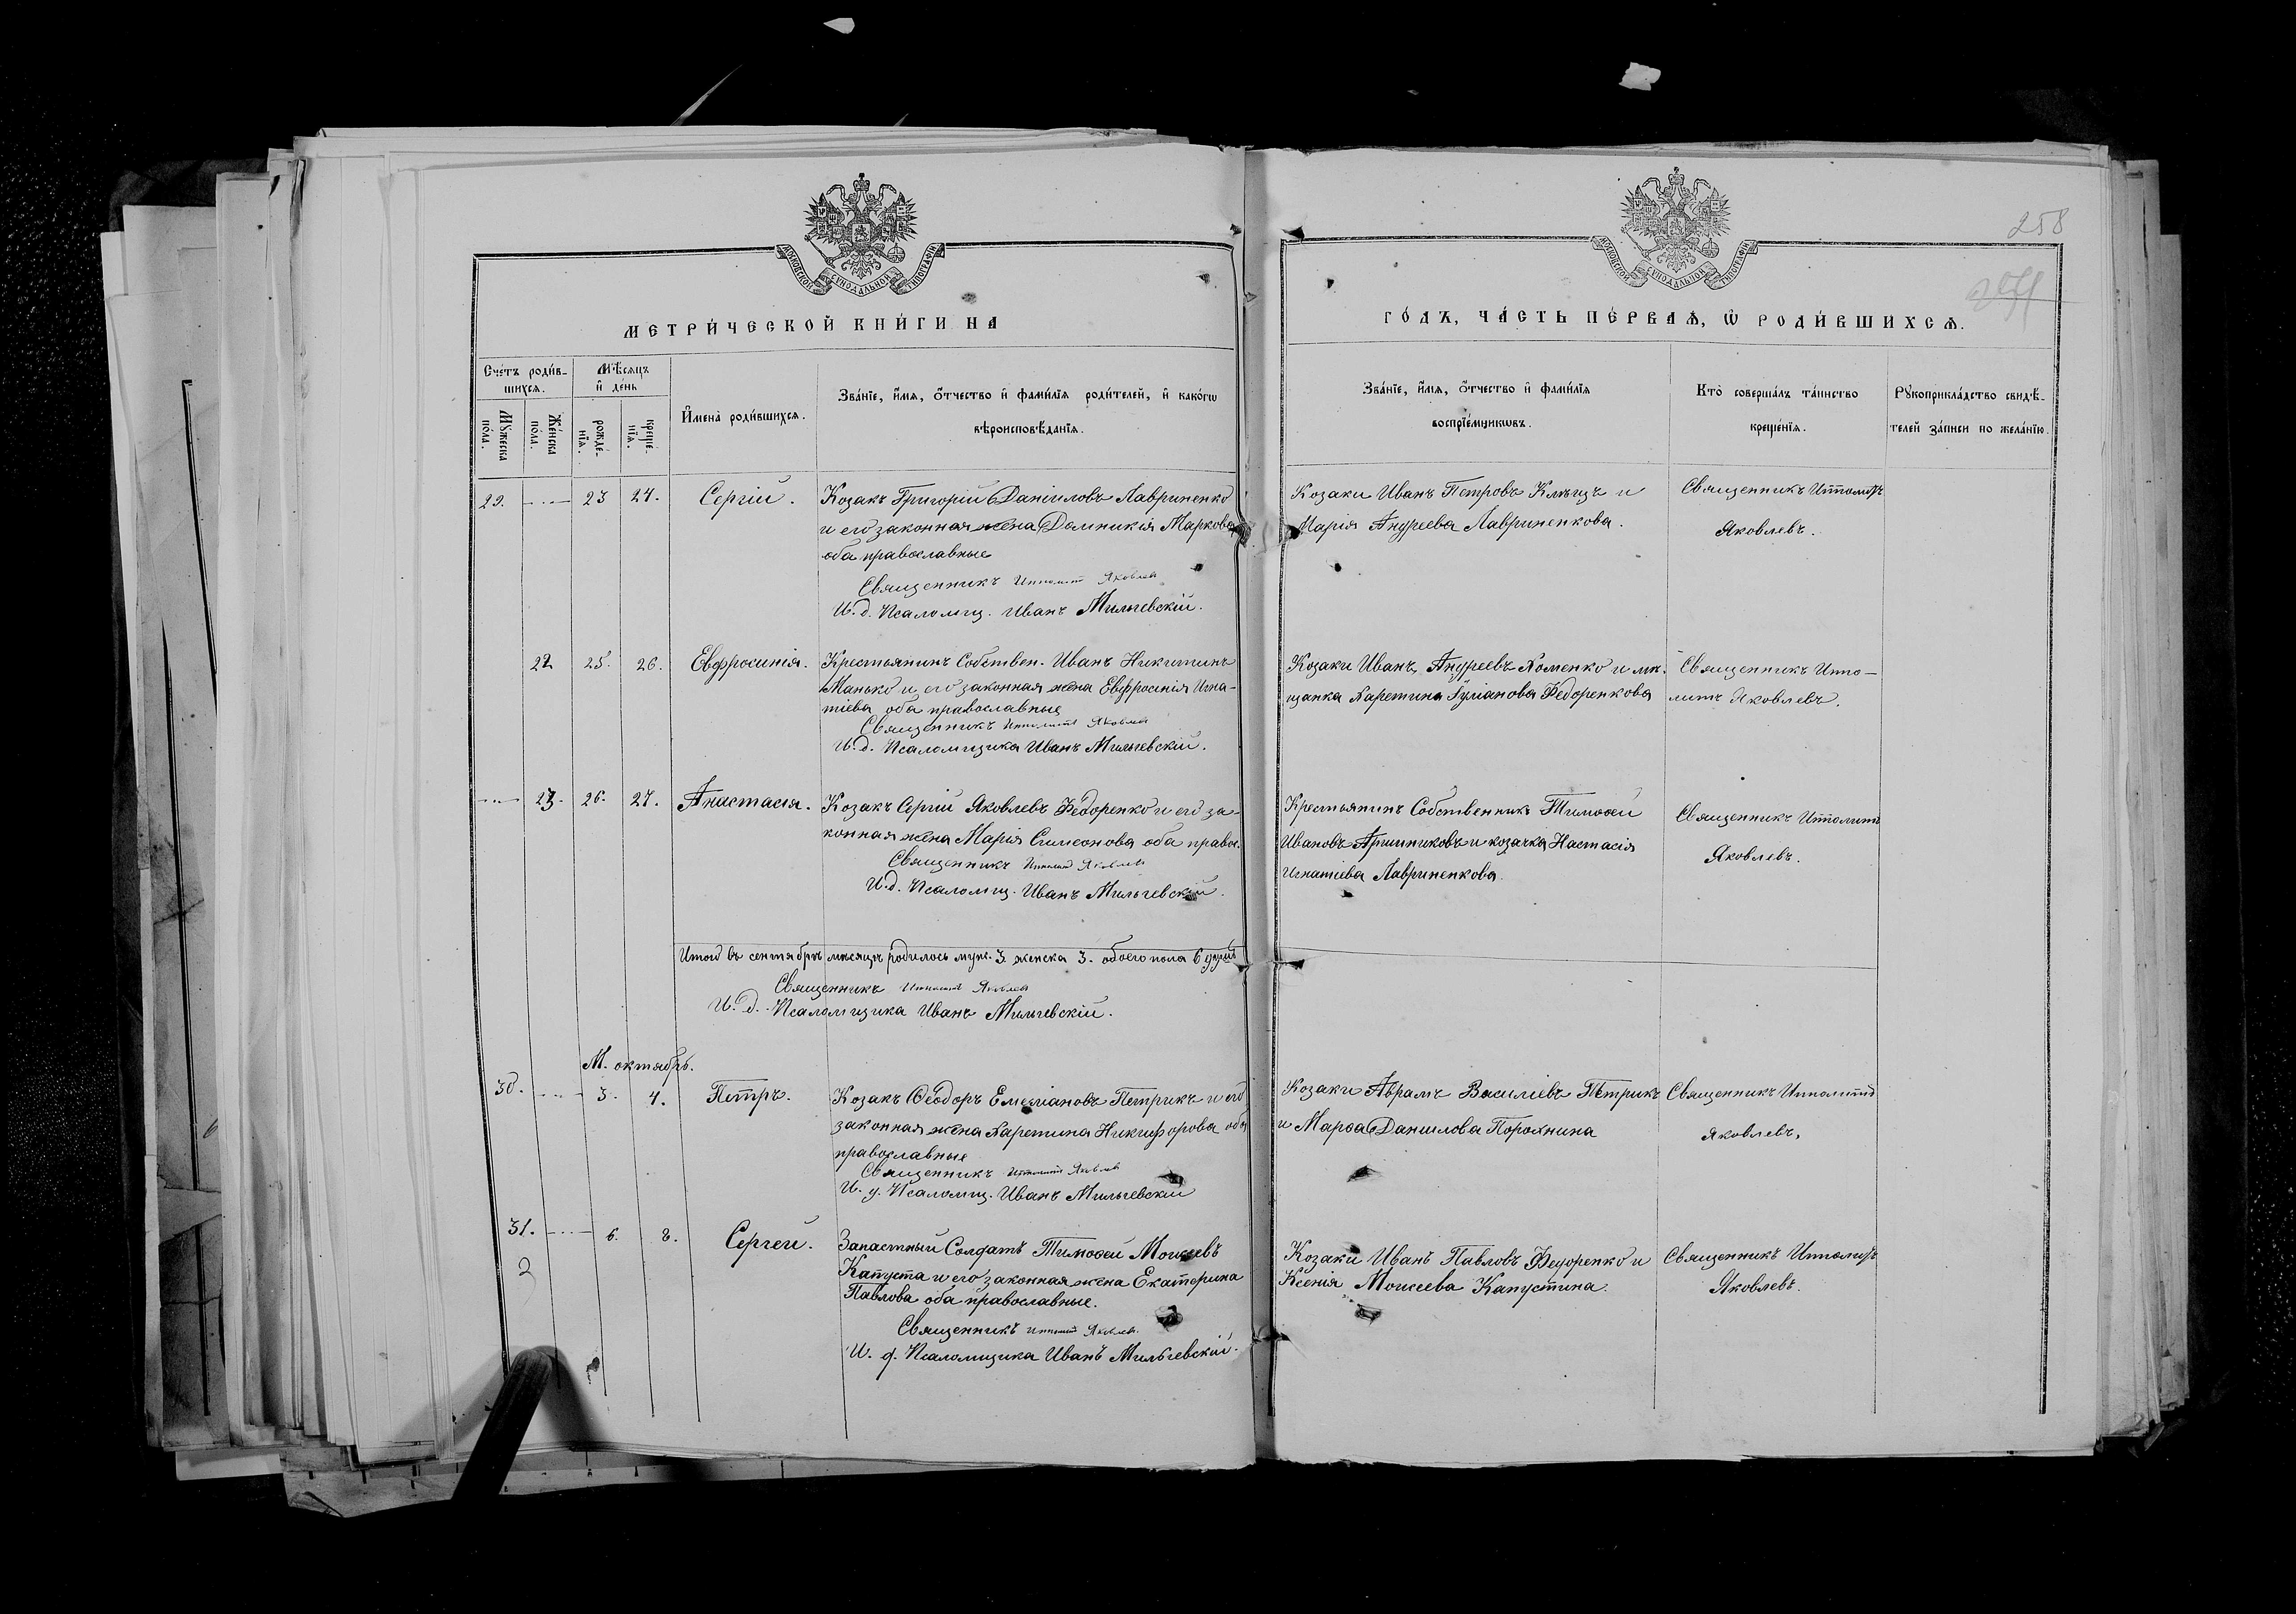 258
МОСКОВСКОЙ СѴНОДАЛЬНОЙ ТИПОГРАФІИ
МОСКОВСКОЙ СѴНОДАЛЬНОЙ ТИПОГРАФІИ
МЕТРИ́ЧЕСКОЙ КНИ́ГИ НА
ГО́ДЪ, ЧА́СТЬ ПЕ́РВАѦ, Ѽ РОДИ́ВШИХСѦ.
Сче́тъ роди́в-
шихсѧ.
Мꙋ́жеска по́ла.
Же́нска по́ла.
Мѣ́сѧцъ
и҆ де́нь
рожде́-
нїѧ.
креще́-
нїѧ.
И҆мена̀ роди́вшихсѧ.
Зва́нїе, и҆́мѧ, ѻ҆́тчество и҆ фами́лїѧ роди́телей, и҆ како́гѡ
вѣроисповѣ́данїѧ.
Зва́нїе, и҆́мѧ, ѻ҆́тчество и҆ фами́лїѧ
воспрїе́мникѡвъ.
Кто̀ соверша́лъ та́инство
креще́нїѧ.
Рꙋкоприкла́дство свидѣ́-
телей за́писи по жела́нїю.
29. 23 24. Сергій. Козакъ Григорій Даніиловъ Лавриненко
и его законная жена Домникія Маркова
оба православные
Священникъ Ипполит Яковлев
И. д. Псаломщ. Иванъ Мильчевскій.
Козаки Иванъ Петровъ и
Марія Андреева Лавриненкова.
Священникъ Ипполитъ
Яковлевъ.
22 25. 26. Евфросинія. Крестьянинъ Собствен. Иванъ Никитинъ
Манько и его законная жена Евфросинія Игна-
тіева оба православные
Священникъ Ипполитъ Яковлев
И. д. Псаломщика Иванъ Мильчевскій.
Козаки Иванъ Андреевъ Хоменко и мѣ-
щанка Харетина Гуліанова Федоренкова
Священникъ Иппо-
литъ Яковлевъ.
23. 26. 27. Анастасія. Козакъ Сергій Яковлевъ Федоренко и его за-
конная жена Марія Симеонова оба правос.
Священникъ Ипполит Яковлев
И. д. Псаломщ. Иванъ Мильчевскій.
Крестьянинъ Собственникъ Тимоѳей
Ивановъ и козачка Настасія
Игнатіева Лавриненкова.
Священникъ Ипполитъ
Яковлевъ.
Итого въ сентябрѣ мѣсяцѣ родилось муж. 3. женска 3. обоего пола 6 душъ
Священникъ Ипполитъ Яковлев
И. д. Псаломщика Иванъ Мильчевскій.
М. октябрь.
30. 3. 4. Петръ. Козакъ Ѳеодоръ Емеліановъ Петрикъ и его
законная жена Харетина Никифорова оба
православные
Священникъ Ипполитъ Яковлев
И. д. Псаломщ. Иванъ Мильчевскій
Козаки Аврамъ Василіевъ Петрикъ
и Марѳа Даниилова Порохнина
Священникъ Ипполитъ
Яковлевъ.
31. 6. 8. Сергей. Запастный Солдатъ Тимоѳей Моисеевъ
Капуста и его законная жена Екатерина
Павлова оба православные.
Священникъ Ипполит Яковлев.
И. д. Псаломщика Иванъ Мильчевскій.
Козаки Иванъ Павловъ Федоренко и
Ксенія Моисеева Капустина.
Священникъ Ипполитъ
Яковлевъ.